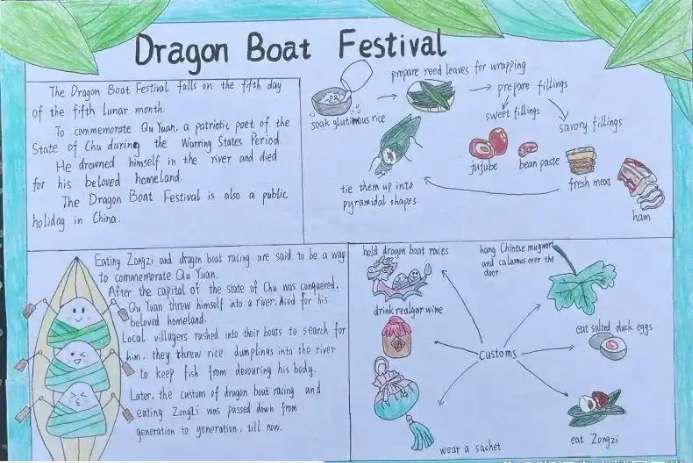 Dragon Boat Festival
The Dragon Boat Festival falls on the fifth day
of the fifth Lunar month.
To commemorate Qu Yuan, a patriotic poet of the
State of Chu during the Warring States Period.
He drowned himself in the river and died
for his beloved homeland.
The Dragon Boat Festival is also a public
holiday in China.
soak glutinous rice
prepare reed leaves for wrapping
prepare fillings
sweet fillings
savory fillings
jujube
bean paste
fresh meat
ham
tie them up into
pyramidal shapes
Eating Zongzi and dragon boat racing are said to be a way
to commemorate Qu Yuan.
After the capital of the state of Chu was conquered,
Qu Yuan threw himself into a river. died for his
beloved homeland.
Local villagers rushed into their boats to search for
him, they threw rice dumplings into the river
to keep fish from devouring his body.
Later, the custom of dragon boat racing and
eating Zongzi was passed down from
generation to generation, till now.
Customs
hold dragon boat races
hang Chinese mugwort
and calamus over the
door
drink realgar wine
eat salted duck eggs
wear a sachet
eat Zongzi